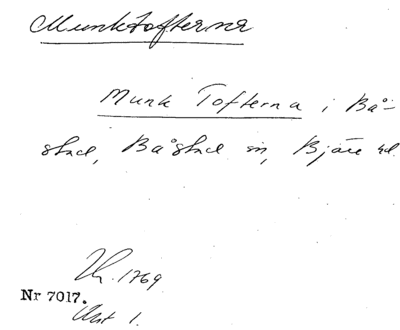 Munktofterna
Munk Tofterna i Bå-
stad, Båstad sn, Bjäre hd.
1769
Nr 7017.
Akt 1.